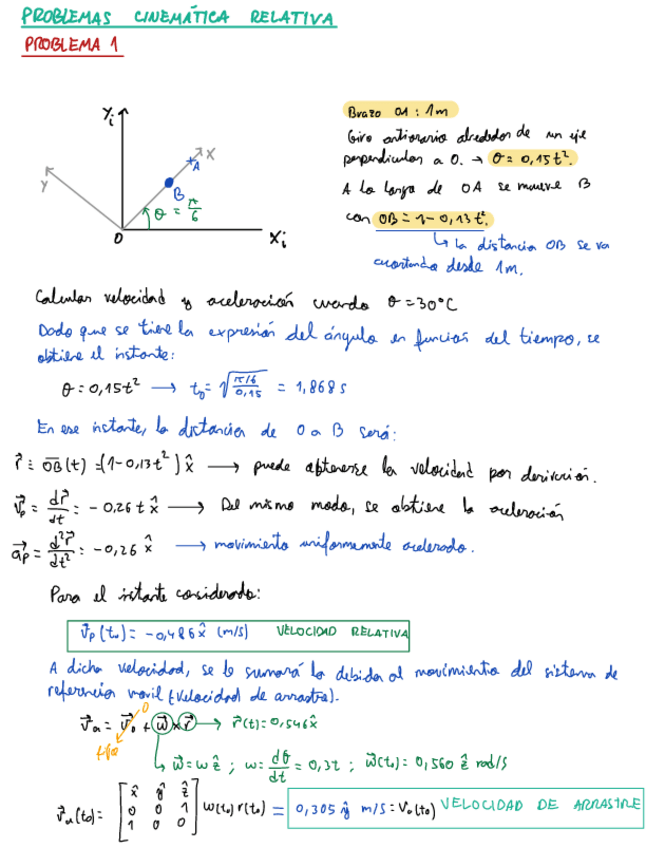 PROBLEMAS CINEMÁTICA RELATIVA
PROBLEMA 1
Brazo OA : 1m
Giro antiorario alrededor de un eje
perpendicular a O. → θ = 0,15t².
A lo largo de OA se mueve B
con OB = 1 - 0,13t².
↳ la distancia OB se va
acortando desde 1m.
Yi
X
A
y
B
θ = π/6
O
Xi
Calcular velocidad y aceleración cuando θ = 30°C
Dado que se tiene la expresión del ángulo en función del tiempo, se
obtiene el instante:
θ = 0,15t² → t₀ = √((π/6)/0,15) = 1,868 s
En ese instante, la distancia de O a B será:
r⃗ = OB(t) = (1 - 0,13t²) x̂ → puede obtenerse la velocidad por derivación.
v⃗p = dr⃗/dt = -0.26 t x̂ → Del mismo modo, se obtiene la aceleración
a⃗p = d²r⃗/dt² = -0,26 x̂ → movimiento uniformemente acelerado.
Para el instante considerado:
v⃗p(t₀) = -0,486 x̂ (m/s) VELOCIDAD RELATIVA
A dicha velocidad, se le sumará la debida al movimiento del sistema de
referencia móvil (velocidad de arrastre).
v⃗a = v⃗o + ω⃗ × r⃗ → r⃗(t) = 0,546 x̂
0
↳ ω⃗ = ω ẑ ; ω = dθ/dt = 0,3t ; ω⃗(t₀) = 0,560 ẑ rad/s
v⃗a(t₀) = [x̂ ŷ ẑ
0 0 1
1 0 0] ω(t₀) r(t₀) = 0,305 ŷ m/s = Va(t₀) VELOCIDAD DE ARRASTRE